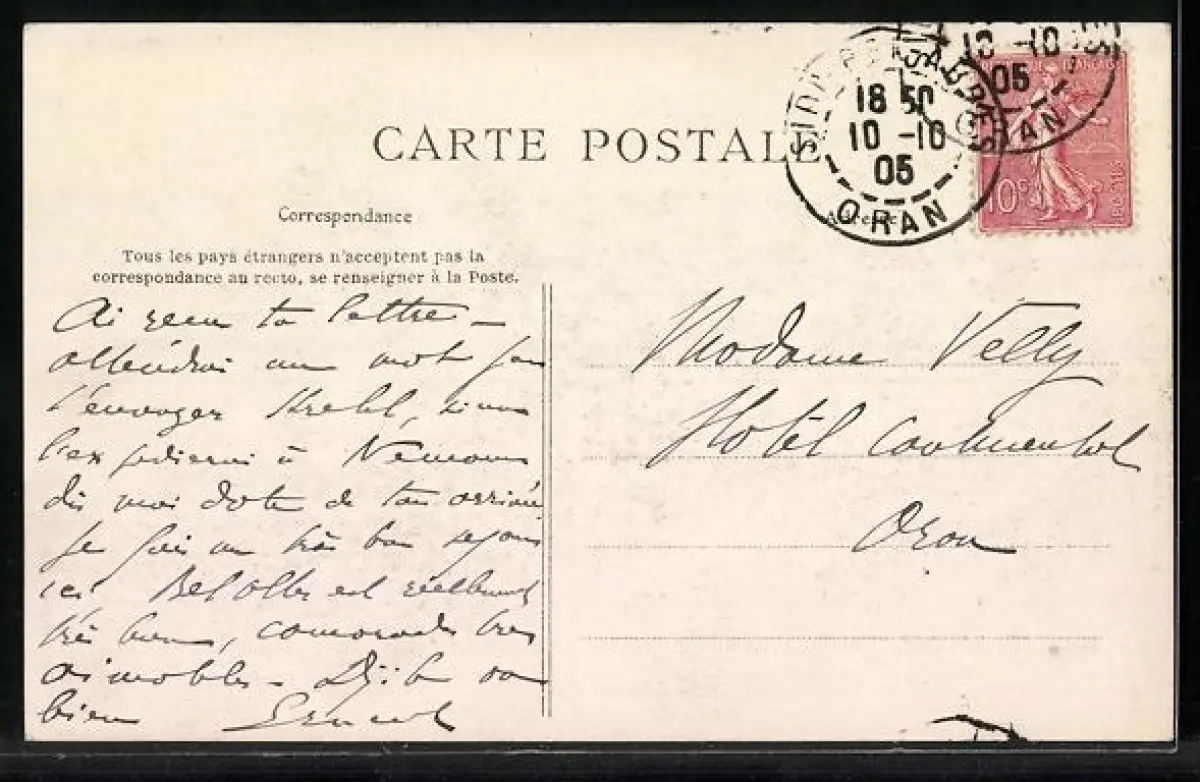 CARTE POSTALE
Correspondance
Tous les pays étrangers n'acceptent pas la
correspondance au recto, se renseigner à la Poste.
SIDI BEL ABBES
18 50
10 - 10
05
ORAN
10 - 10
05
ORAN
RÉPUBLIQUE FRANÇAISE
10c
POSTES
Ai reçu ta lettre -
attendrai un mot pour
t'envoyer
à Nemours
dis moi date de ton arrivée
Je fais un très bon séjour
ici Bel Abbes est réellement
très bien, camarades très
aimables -
bien
Madame Velly
Hotêl Continental
Oran